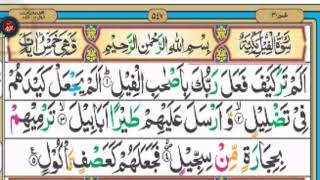 ۵۴۷
سُوْرَةُ الْفِيْلِ مَكِّيَّةٌ بِسْمِ اللّٰهِ الرَّحْمٰنِ الرَّحِيْمِ وَّهِيَ خَمْسُ اٰيَاتٍ
اَلَمْ تَرَ كَيْفَ فَعَلَ رَبُّكَ بِاَصْحٰبِ الْفِيْلِ ۱ اَلَمْ يَجْعَلْ كَيْدَهُمْ
فِيْ تَضْلِيْلٍ ۲ وَّاَرْسَلَ عَلَيْهِمْ طَيْرًا اَبَابِيْلَ ۳ تَرْمِيْهِمْ
بِحِجَارَةٍ مِّنْ سِجِّيْلٍ ۴ فَجَعَلَهُمْ كَعَصْفٍ مَّاْكُوْلٍ ۵